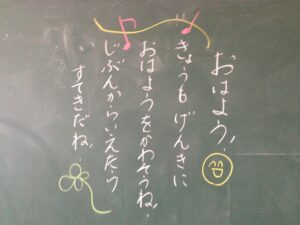 おはよう!
きょうもげんきに
おはようをかわそうね。
じぶんからいえたら
すてきだね。